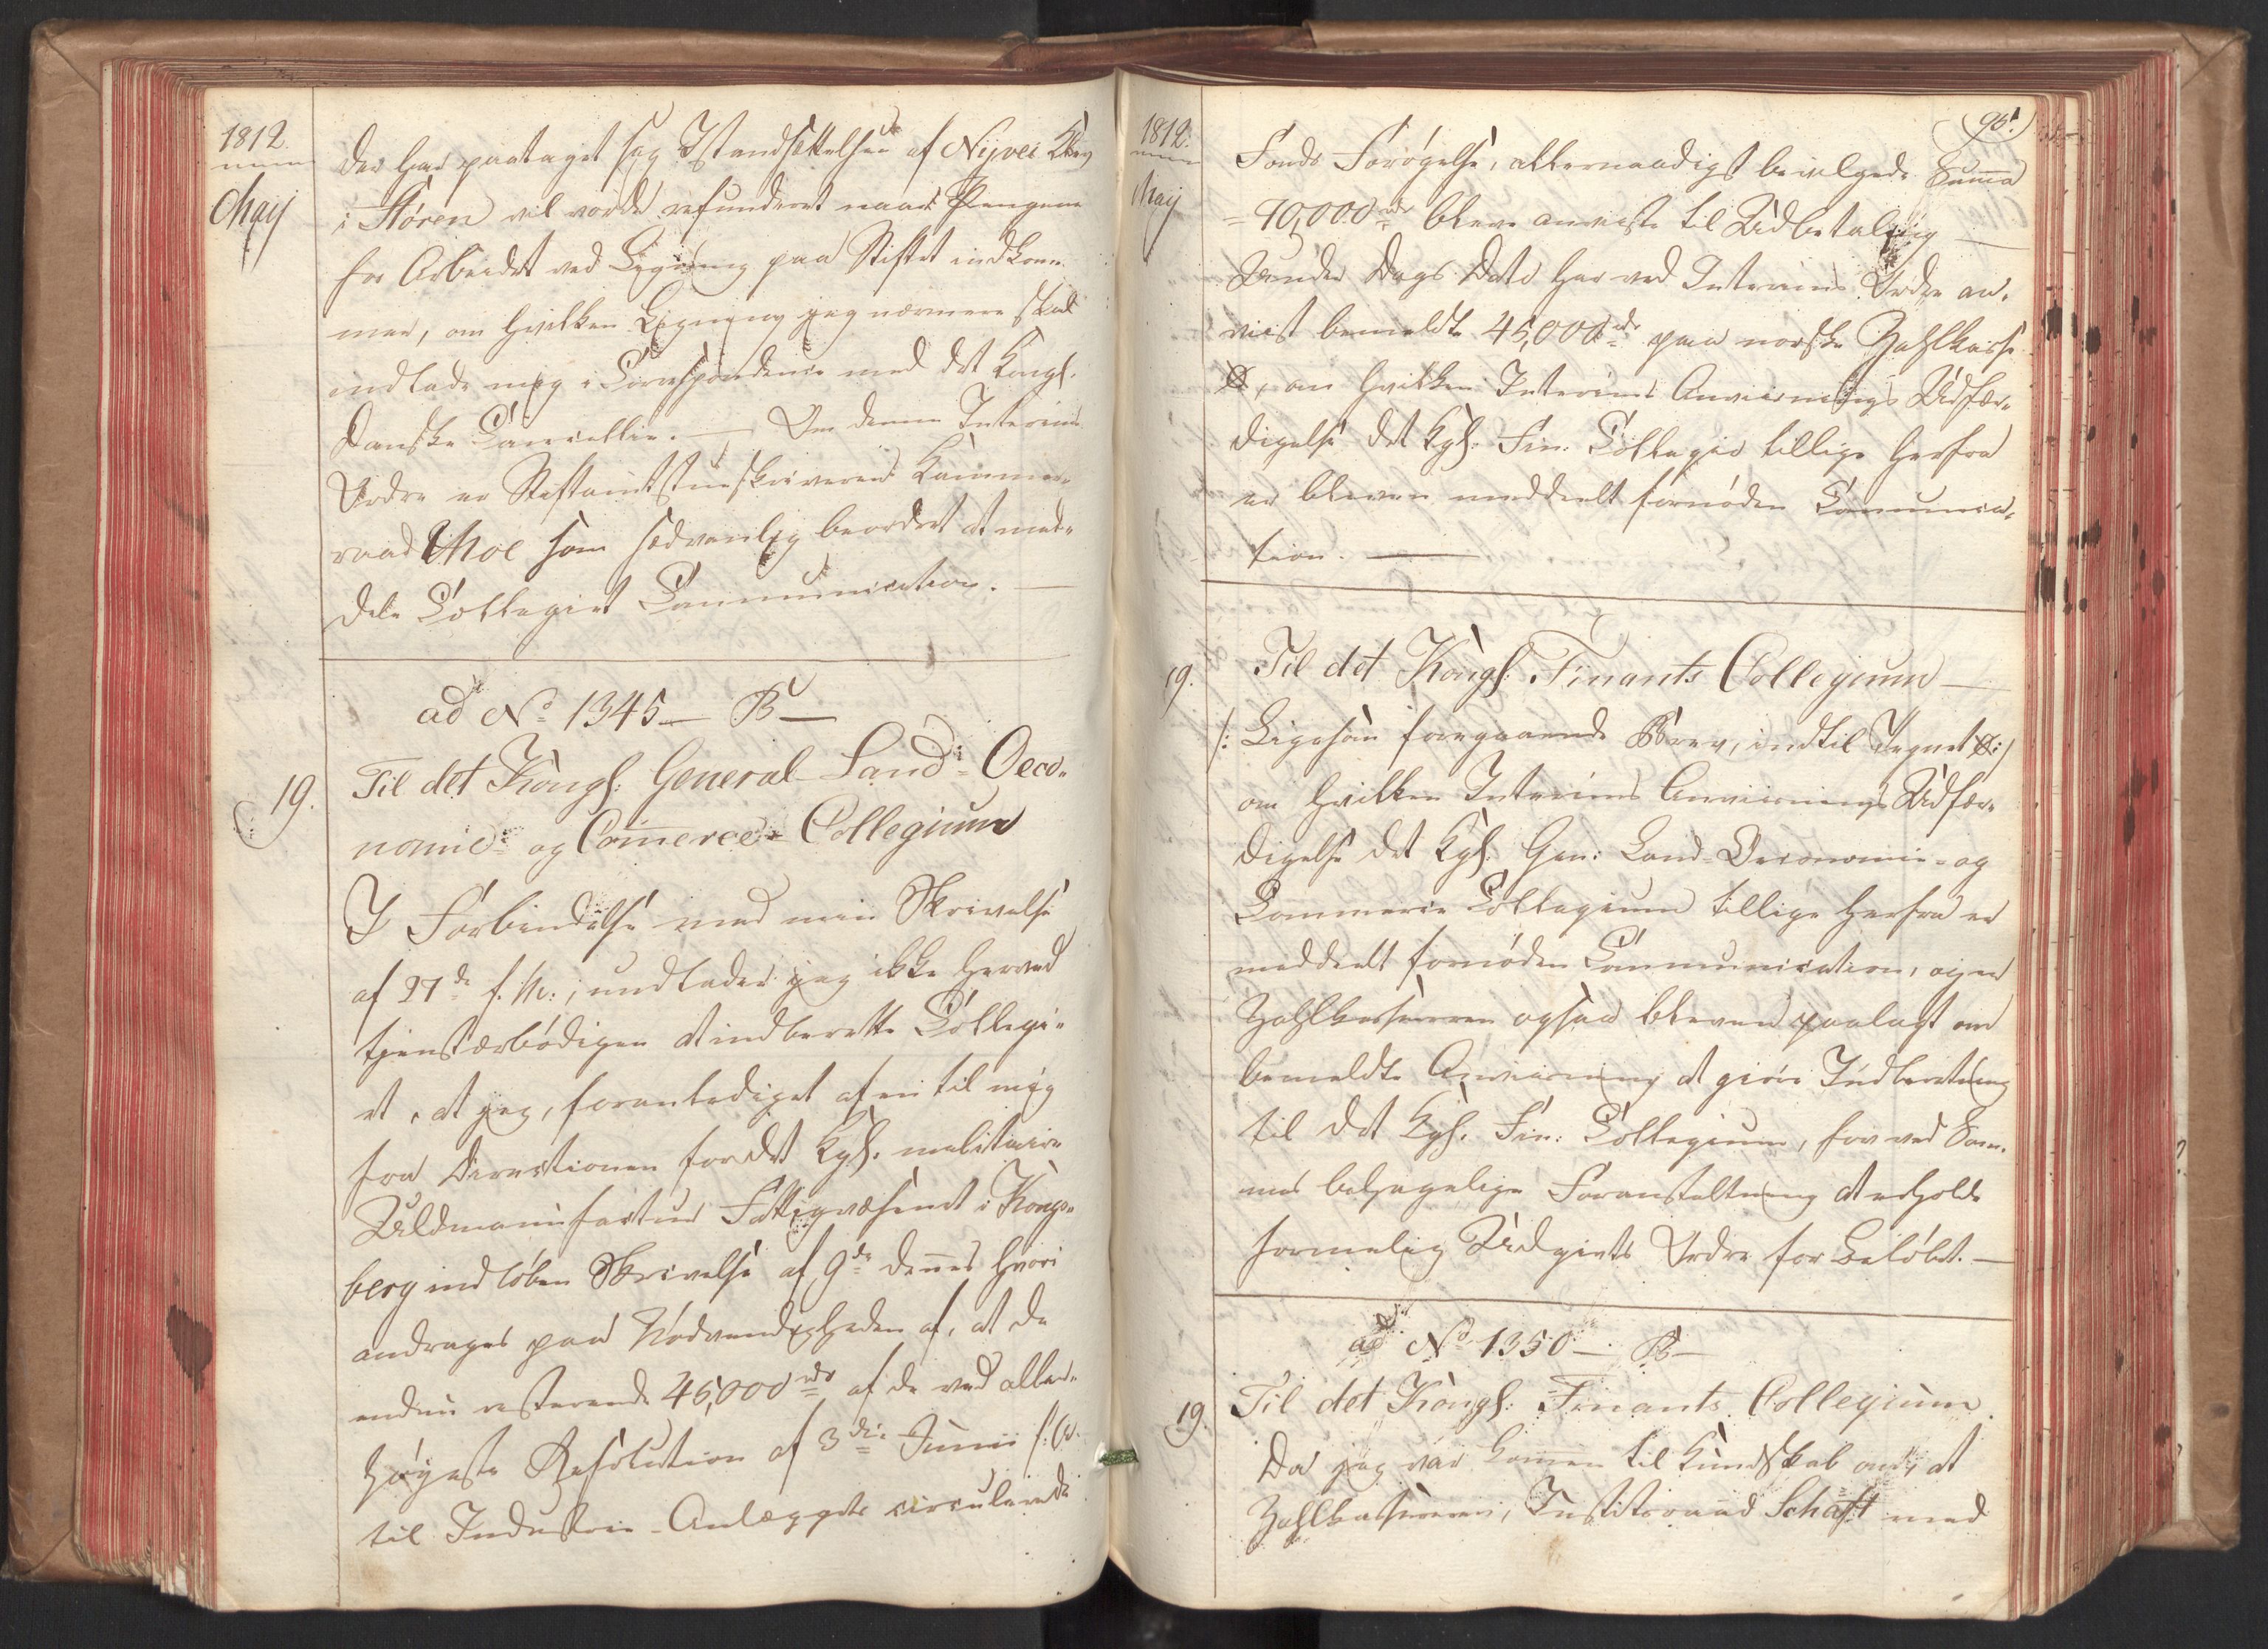 1812.
May
der har paataget sig Istandsættelsen af Nijvei Klev
i Støren vil vorde refunderet naar Pengene
for Arbeidet ved Ligning paa Stiftet indkom-
mer, om hvilken Ligning jeg nærmere skal
indlade mig i Correspondence med det Kongl.
Danske Cancellie. — Om denne Interims
Ordre er Stiftamtstueskriveren Kammer-
raad Moe som sædvanlig beordret at med-
dele Collegiet Communication. —
ad No 1345 — B —
19.
Til det Kongl: General-Land-Oeco-
nomie- og Commerce-Collegium
I Forbindelse med min Skrivelse
af 27de f. M:, undlader jeg ikke herved
tjenstærbødigen at indberette Collegi-
et, at jeg, foranlediget af en til mig
fra Directionen for det Kgl. militaire
Uldmanufactur Fattigvæsenet i Kongs-
berg indløben Skrivelse af 9de dennes hvori
andrages paa Nødvendigheden af, at de
endnu resterende 45,000 rdr af de ved aller-
høyeste Resolution af 3die Junii f: A.
til Industrie-Anlæggets circulerende
1812.
May
95.
Fonds Forøgelse, allernaadigst bevilgede Summa
90,000 rdr bleve anviste til Udbetaling —
Under Dags Dato har ved Interims Ordre an-
viist bemeldte 45,000 rdr paa norske Zahlkasse
, om hvilken Interims Anviisnings Udfær-
digelse det Kgl: Fin: Collegio tillige herfra
er bleven meddeelt fornøden Communica-
tion. —
19.
Til det Kongl: Finants Collegium —
/: Ligesom foregaaende Brev, indtil Tegnet :/
om hvilken Interims Anviisnings Udfær-
digelse det Kgl: Gen: Land-Oeconomie- og
Commerce Collegium tillige herfra er
meddeelt fornøden Communication, og er
Zahlkassereren ogsaa bleven paalagt om
bemeldte Anviisning at giøre Indberetning
til det Kgl. Fin: Collegium, for ved Sam-
mes behagelige Foranstaltning at erholde
formelig Udgivts Ordre for Beløbet. —
ad No 1350 — B —
19.
Til det Kongl: Finants Collegium
Da jeg var kommen til Kundskab om, at
Zahlkasereren, Justitsraad Schaft med